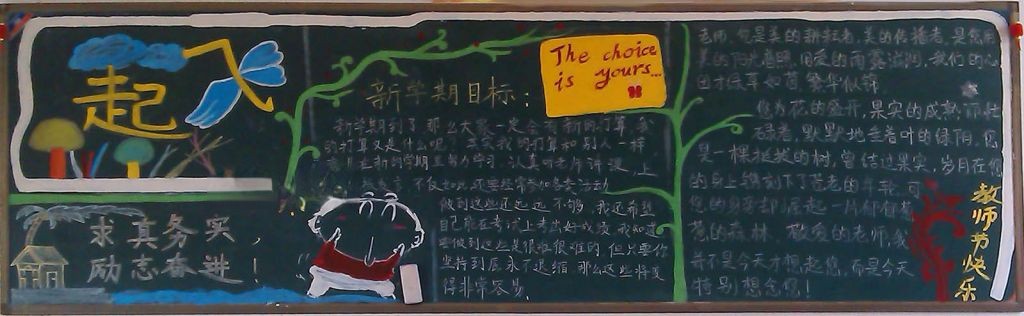 起飞
求真务实，
励志奋进！
新学期目标：
新学期到了，那么大家一定会有新的打算，我
的打算又是什么呢？其实我的打算和别人一样
在新的学期里努力学习，认真听老师讲课，上
不仅如此，还要经常参加各类活动
做到这些还远远不够，我还希望
自己能在考试上考出好成绩，我知道
要做到这些是很难很难的，但只要你
坚持到底，永不退缩，那么这些将变
得非常容易。
The choice
is yours...
老师，您是美的耕耘者，美的传播者，是您用
美的阳光普照，用爱的雨露滋润，我们的心
田才绿草如茵，繁华似锦。
您为花的盛开，果实的成熟而忙
碌着，默默地垂着叶的绿阴，您
是一棵挺拔的树，曾结过果实，岁月在您
的身上镌刻下了苍老的年轮，可
您的身旁却崛起一片郁郁葱
葱的森林，敬爱的老师，我
并不是今天才想起您，而是今天
特别想念您！
教师节快乐